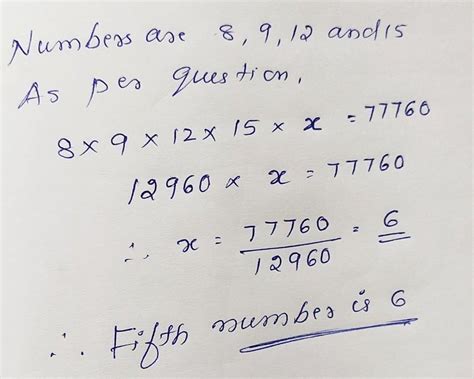 Numbers are 8, 9, 12 and 15
As per question,
8 × 9 × 12 × 15 × x = 77760
12960 × x = 77760
∴ x = 77760/12960 = 6
∴ Fifth number is 6